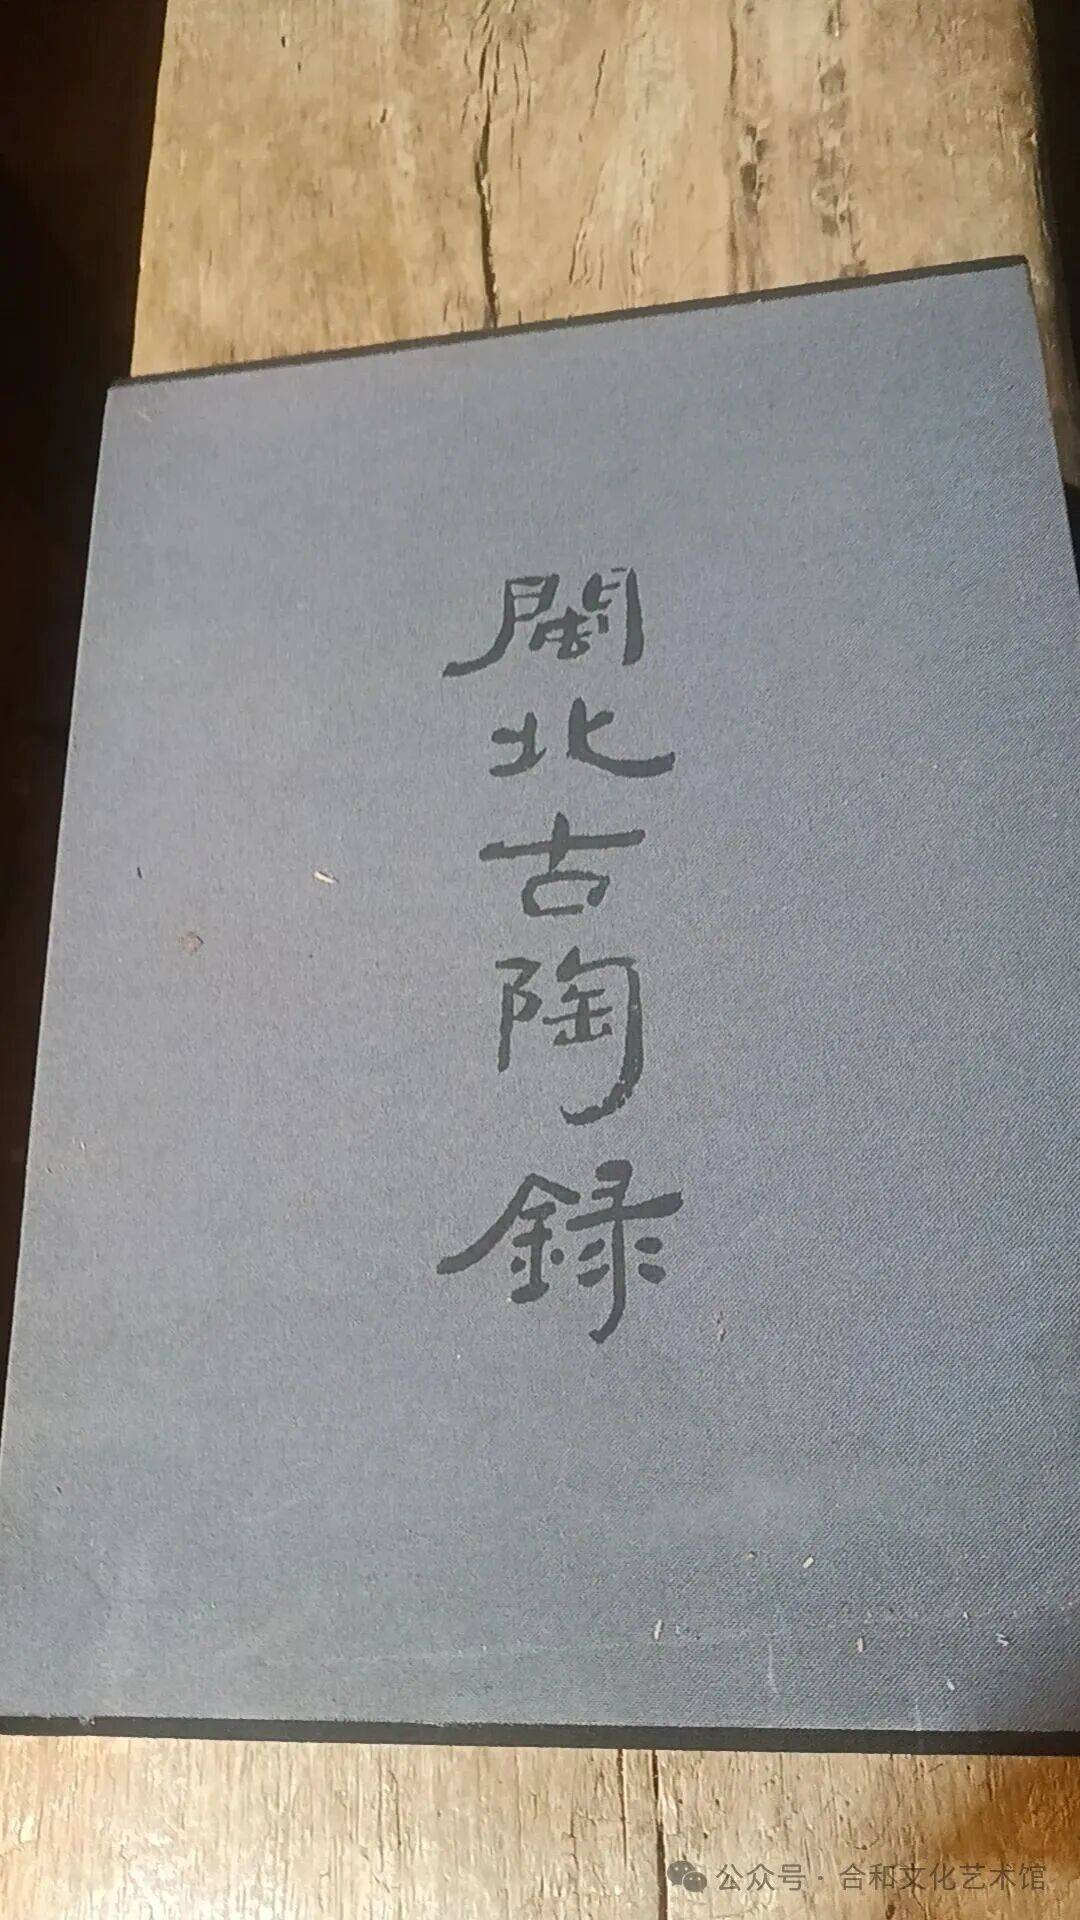 閩北古陶録
公众号·合和文化艺术馆